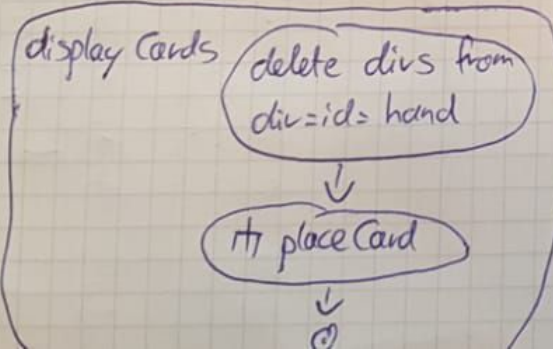 display Cards
delete divs from
div=id= hand
place Card